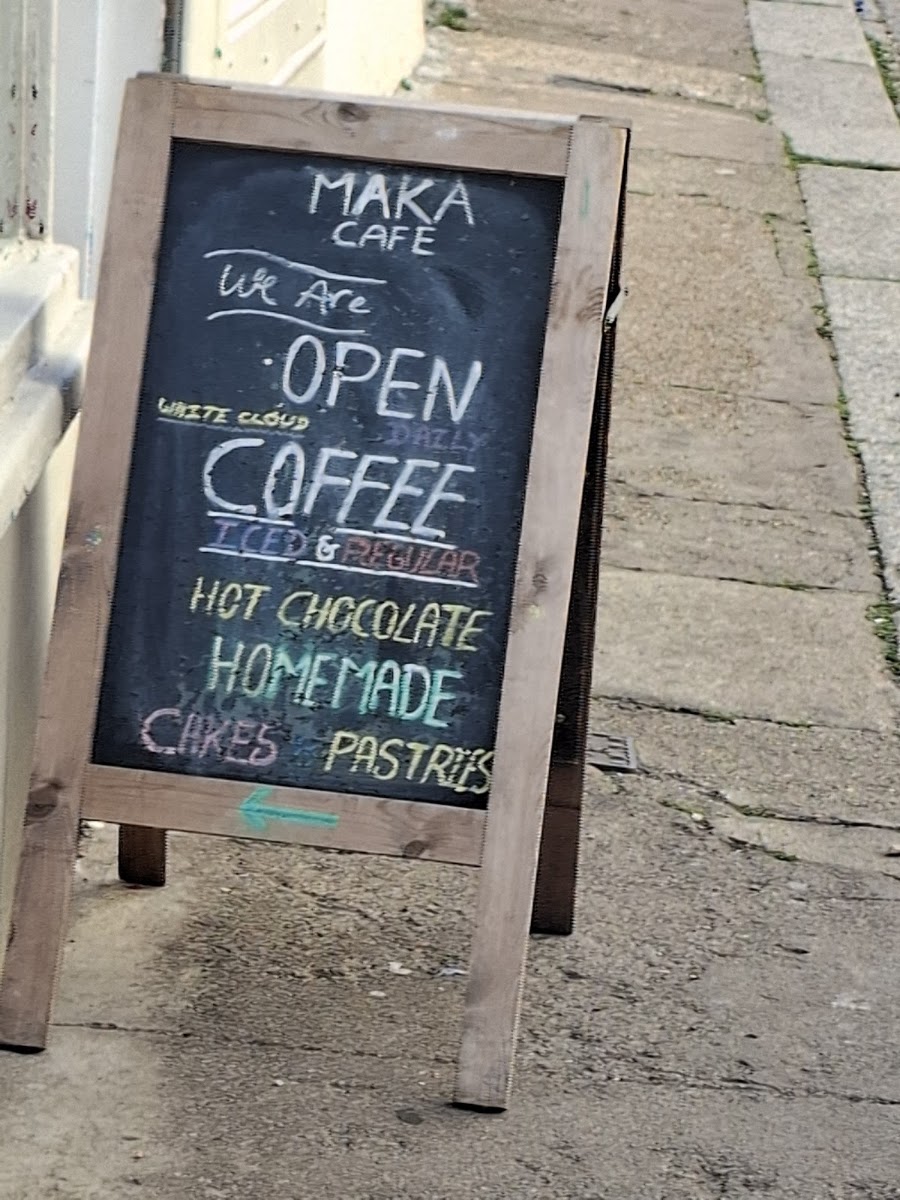 MAKA
CAFE
We Are
OPEN
DAILY
WHITE CLOUD
COFFEE
ICED & REGULAR
HOT CHOCOLATE
HOMEMADE
CAKES & PASTRIES